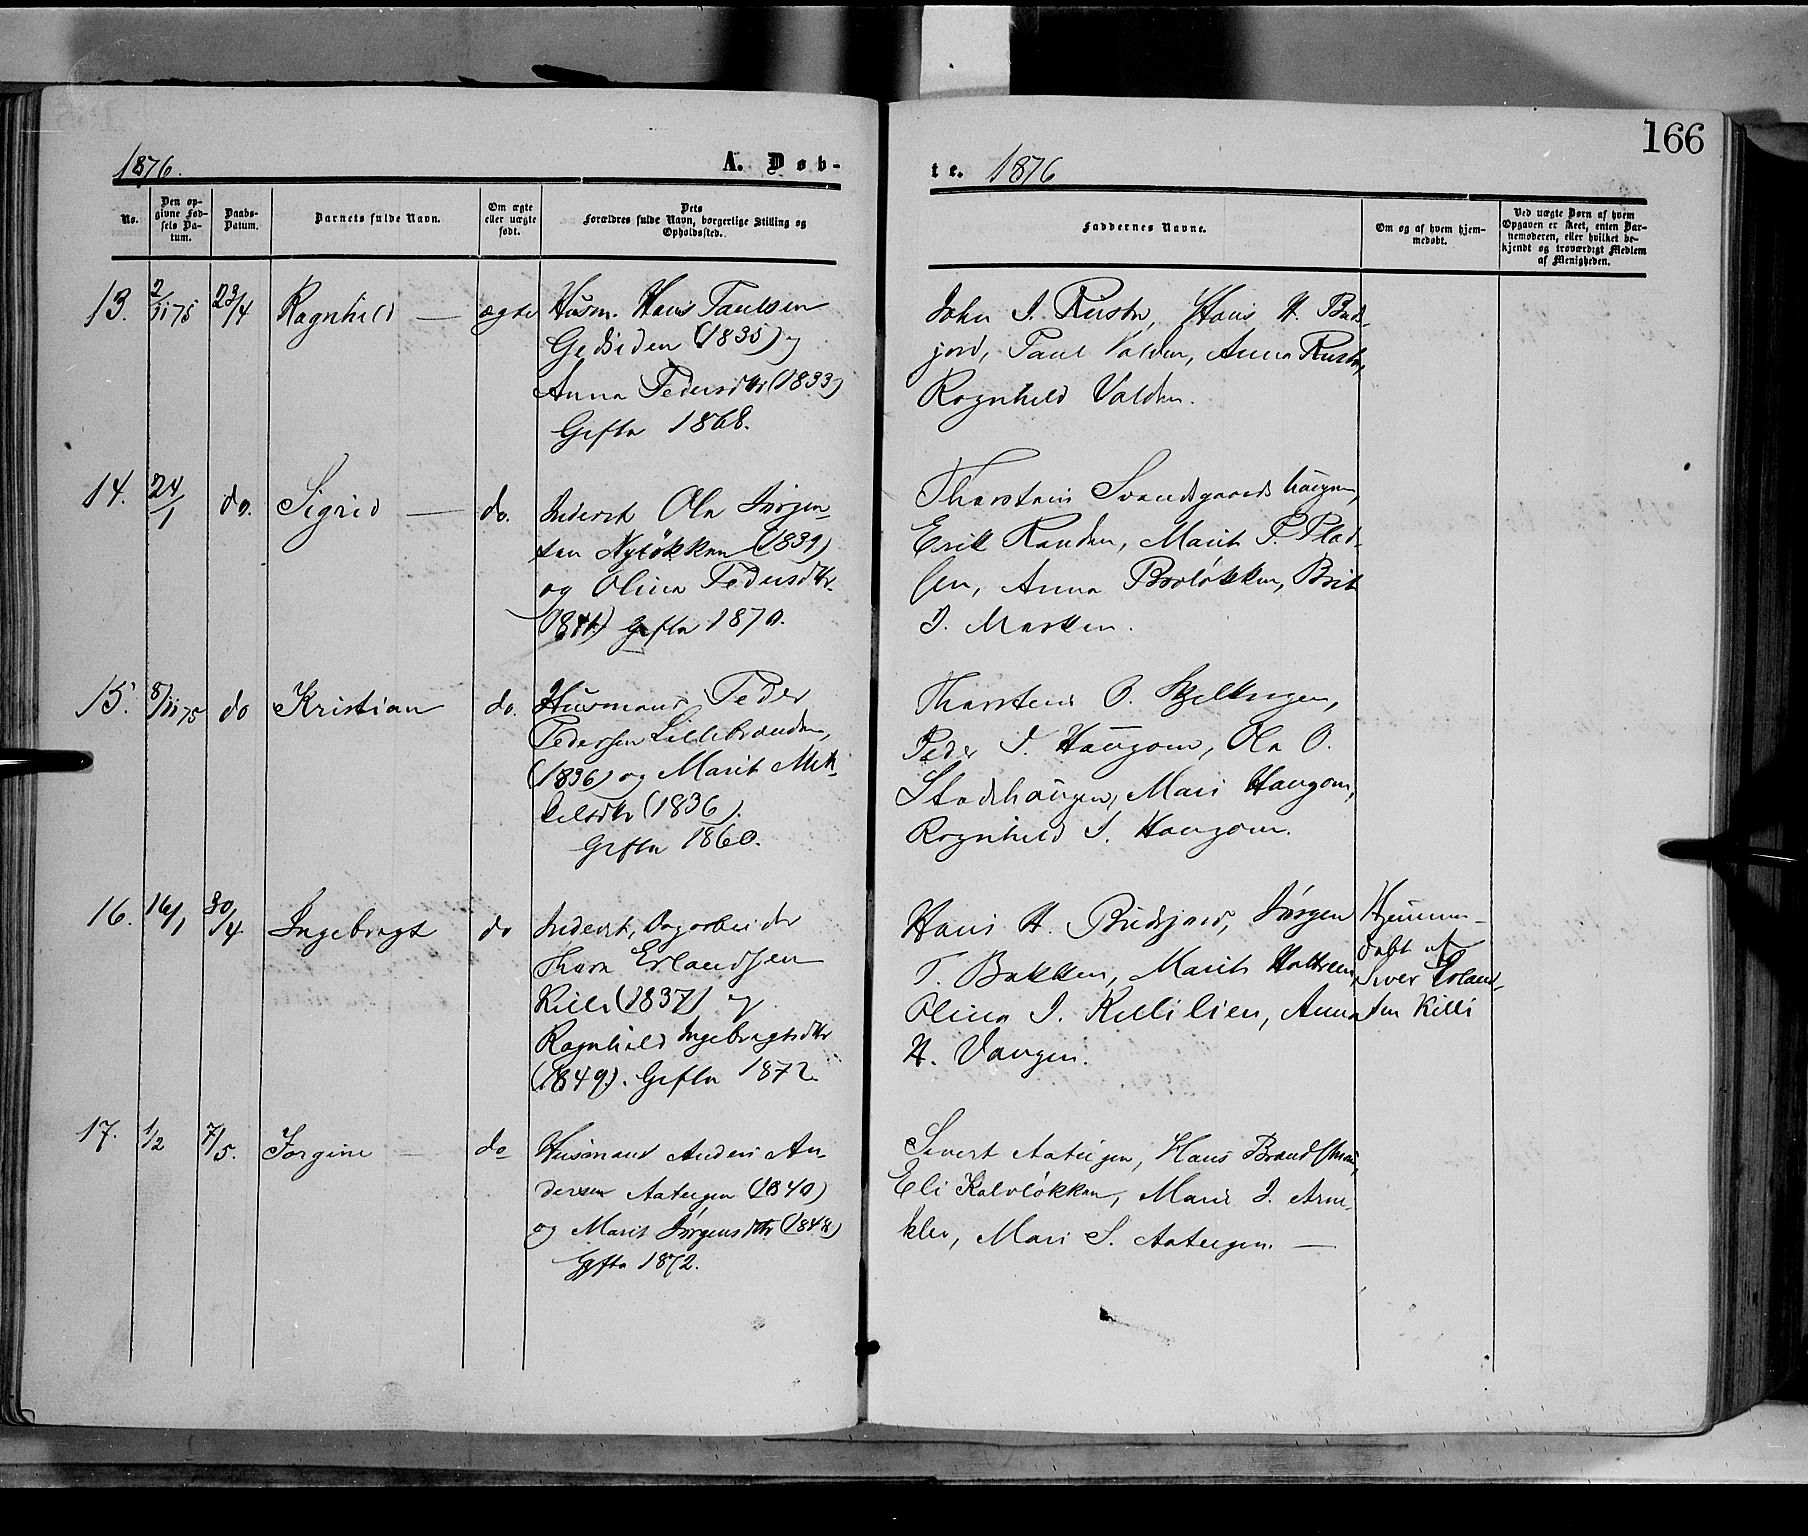 166
1876. A. Døb-
te. 1876
No.
Den op-
givne Fød-
sels Da-
tum.
Daabs-
Datum.
Barnets fulde Navn.
Om ægte
eller uægte
født.
Dets
Forældres fulde Navn, borgerlige Stilling og
Opholdssted.
Faddernes Navne.
Om og af hvem hjem-
medøbt.
Ved uægte Børn af hvem
Opgaven er skeet, enten Bar-
nemoderen, eller hvilket be-
kjendt og troværdigt Medlem
af Menigheden.
13. 2/11 75 23/4 Ragnhild — ægte
Husm. Hans Paulsen
Gedsiden (1835) og
Anna Pedersdtr (1833)
Gifte 1868.
John J. Rusten, Hans H. Buds-
jord, Paul Valden, Anna Rusten,
Ragnhild Valden.
14. 24/1 do. Sigrid — do.
Inderst Ola Jørgen-
sen Nyløkken (1839)
og Olina Pedersdtr.
(1841) Gifte 1870.
Thorstein Svandsgaardshaugen,
Erik Randen, Marit P. Plad-
sen, Anna Broløkken, Brit
J. Marken.
15. 8/11 75 do Kristian do.
Husmand Peder
Pedersen Lillebranden,
(1836) og Marit Mik-
kelsdtr (1836).
Gifte 1860.
Thorstein O.
Peder J. Haugom, Ola O.
Stadshaugen, Mari Haugom,
Ragnhild J. Haugom.
16. 16/1 30/4 Ingebregt do
Inderst, Dagarbeider
Thore Erlandsen
Killi (1837) og
Ragnhild Ingebregtsdtr
(1849). Gifte 1872.
Hans H. Budsjord, Jørgen
T. Bakken, Marit Holtreen,
Olina J. Killilien, Anna
H. Vangen.
Hjemme-
døbt af
Siver Erland-
sen Killi
17. 1/2 7/5. Jorgine — do
Husmand Anders An-
dersen Aateigen (1840)
og Marit Jørgensdtr (1848)
Gifte 1872.
Sivert Aateigen, Hans Brandstuen,
Eli Kalvløkken, Marit J. Arne-
klev, Mari S. Aateigen. —